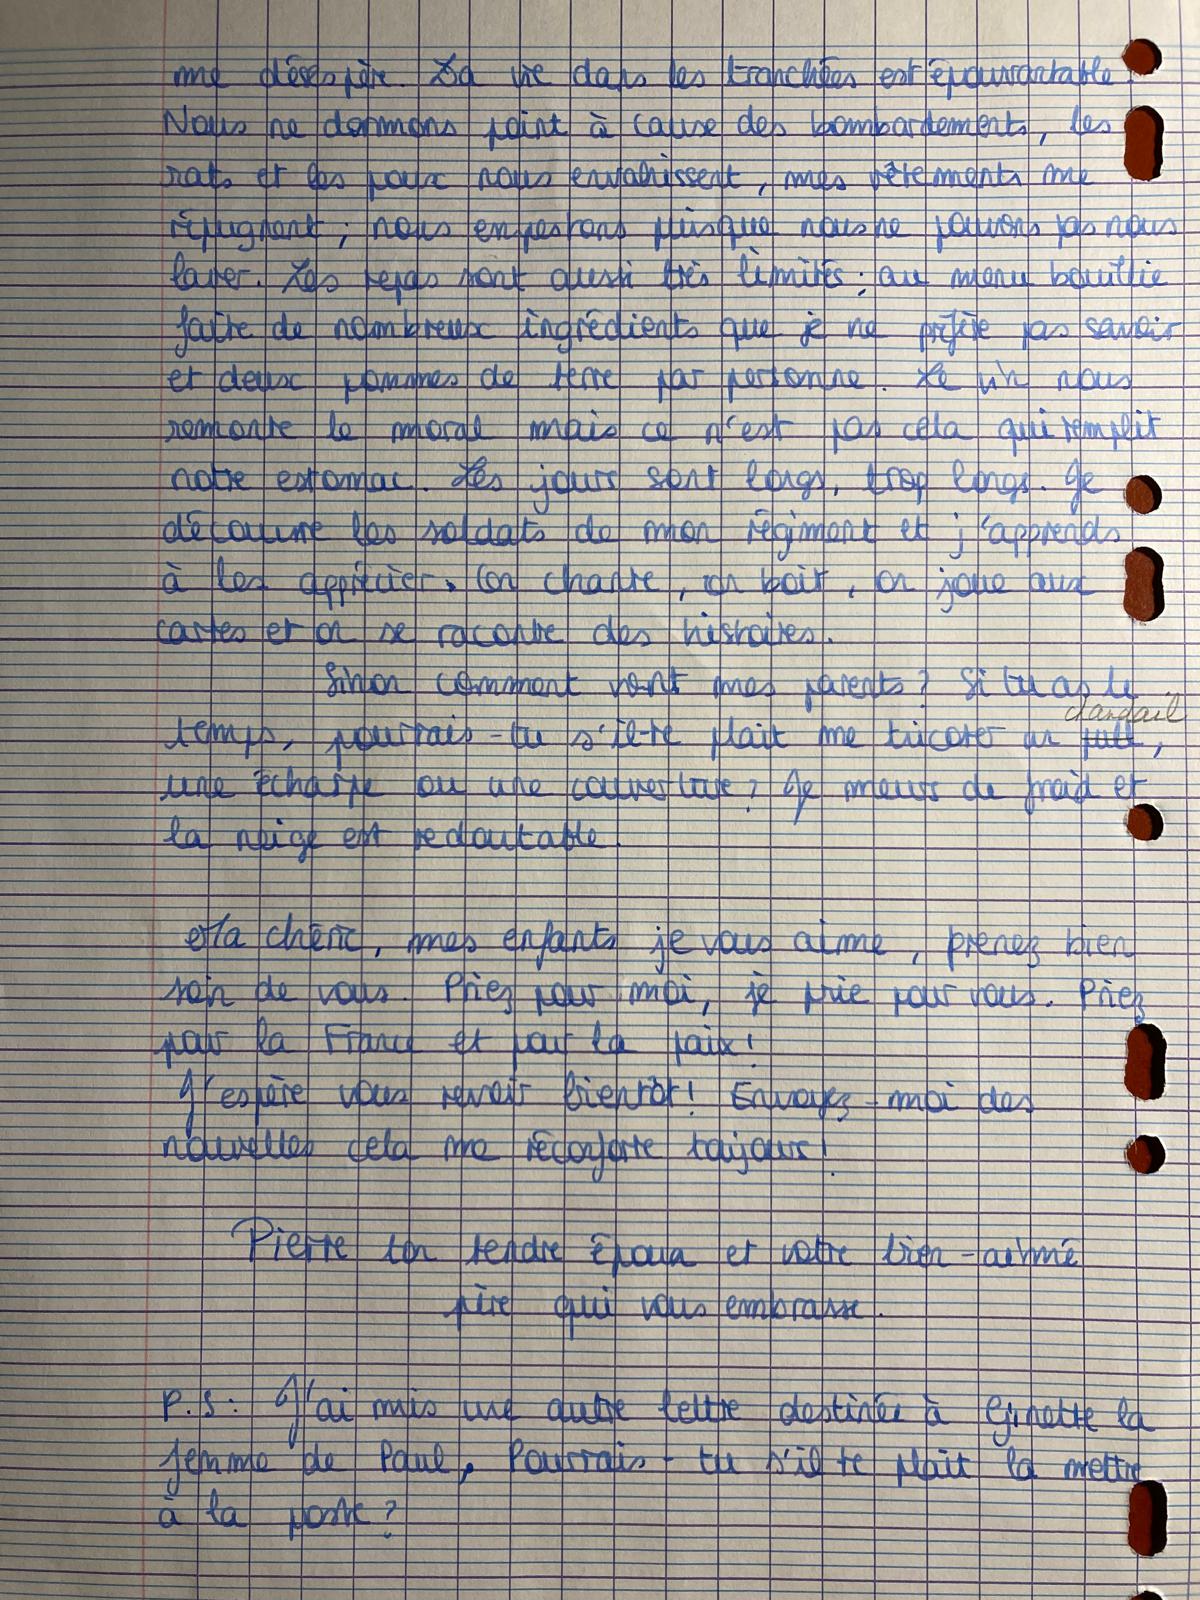 me désespère. La vie dans les tranchées est épouvantable.
Nous ne dormons point à cause des bombardements, les
rats et les poux nous envahissent, mes vêtements me
répugnent ; nous empestons puisque nous ne pouvons pas nous
laver. Les repas sont aussi très limités ; au menu bouillie
faite de nombreux ingrédients que je ne préfère pas savoir
et deux pommes de terre par personne. Le vin nous
remonte le moral mais ce n'est pas cela qui remplit
notre estomac. Les jours sont longs, trop longs. Je
découvre les soldats de mon régiment et j'apprends
à les apprécier. On chante, on boit, on joue aux
cartes et on se raconte des histoires.
Sinon comment vont mes parents ? Si tu as le
chandail
temps, pourrais-tu s'il-te plait me tricoter un pull,
une écharpe ou une couverture ? Je meurs de froid et
la neige est redoutable.
Ma chérie, mes enfants je vous aime, prenez bien
soin de vous. Priez pour moi, je prie pour vous. Priez
pour la France et pour la paix !
J'espère vous revoir bientôt ! Envoyez-moi des
nouvelles cela me réconforte toujours !
Pierre ton tendre époux et votre bien-aimé
père qui vous embrasse.
P.S : J'ai mis une autre lettre destinée à Ginette la
femme de Paul, Pourrais-tu s'il te plait la mettre
à la poste ?